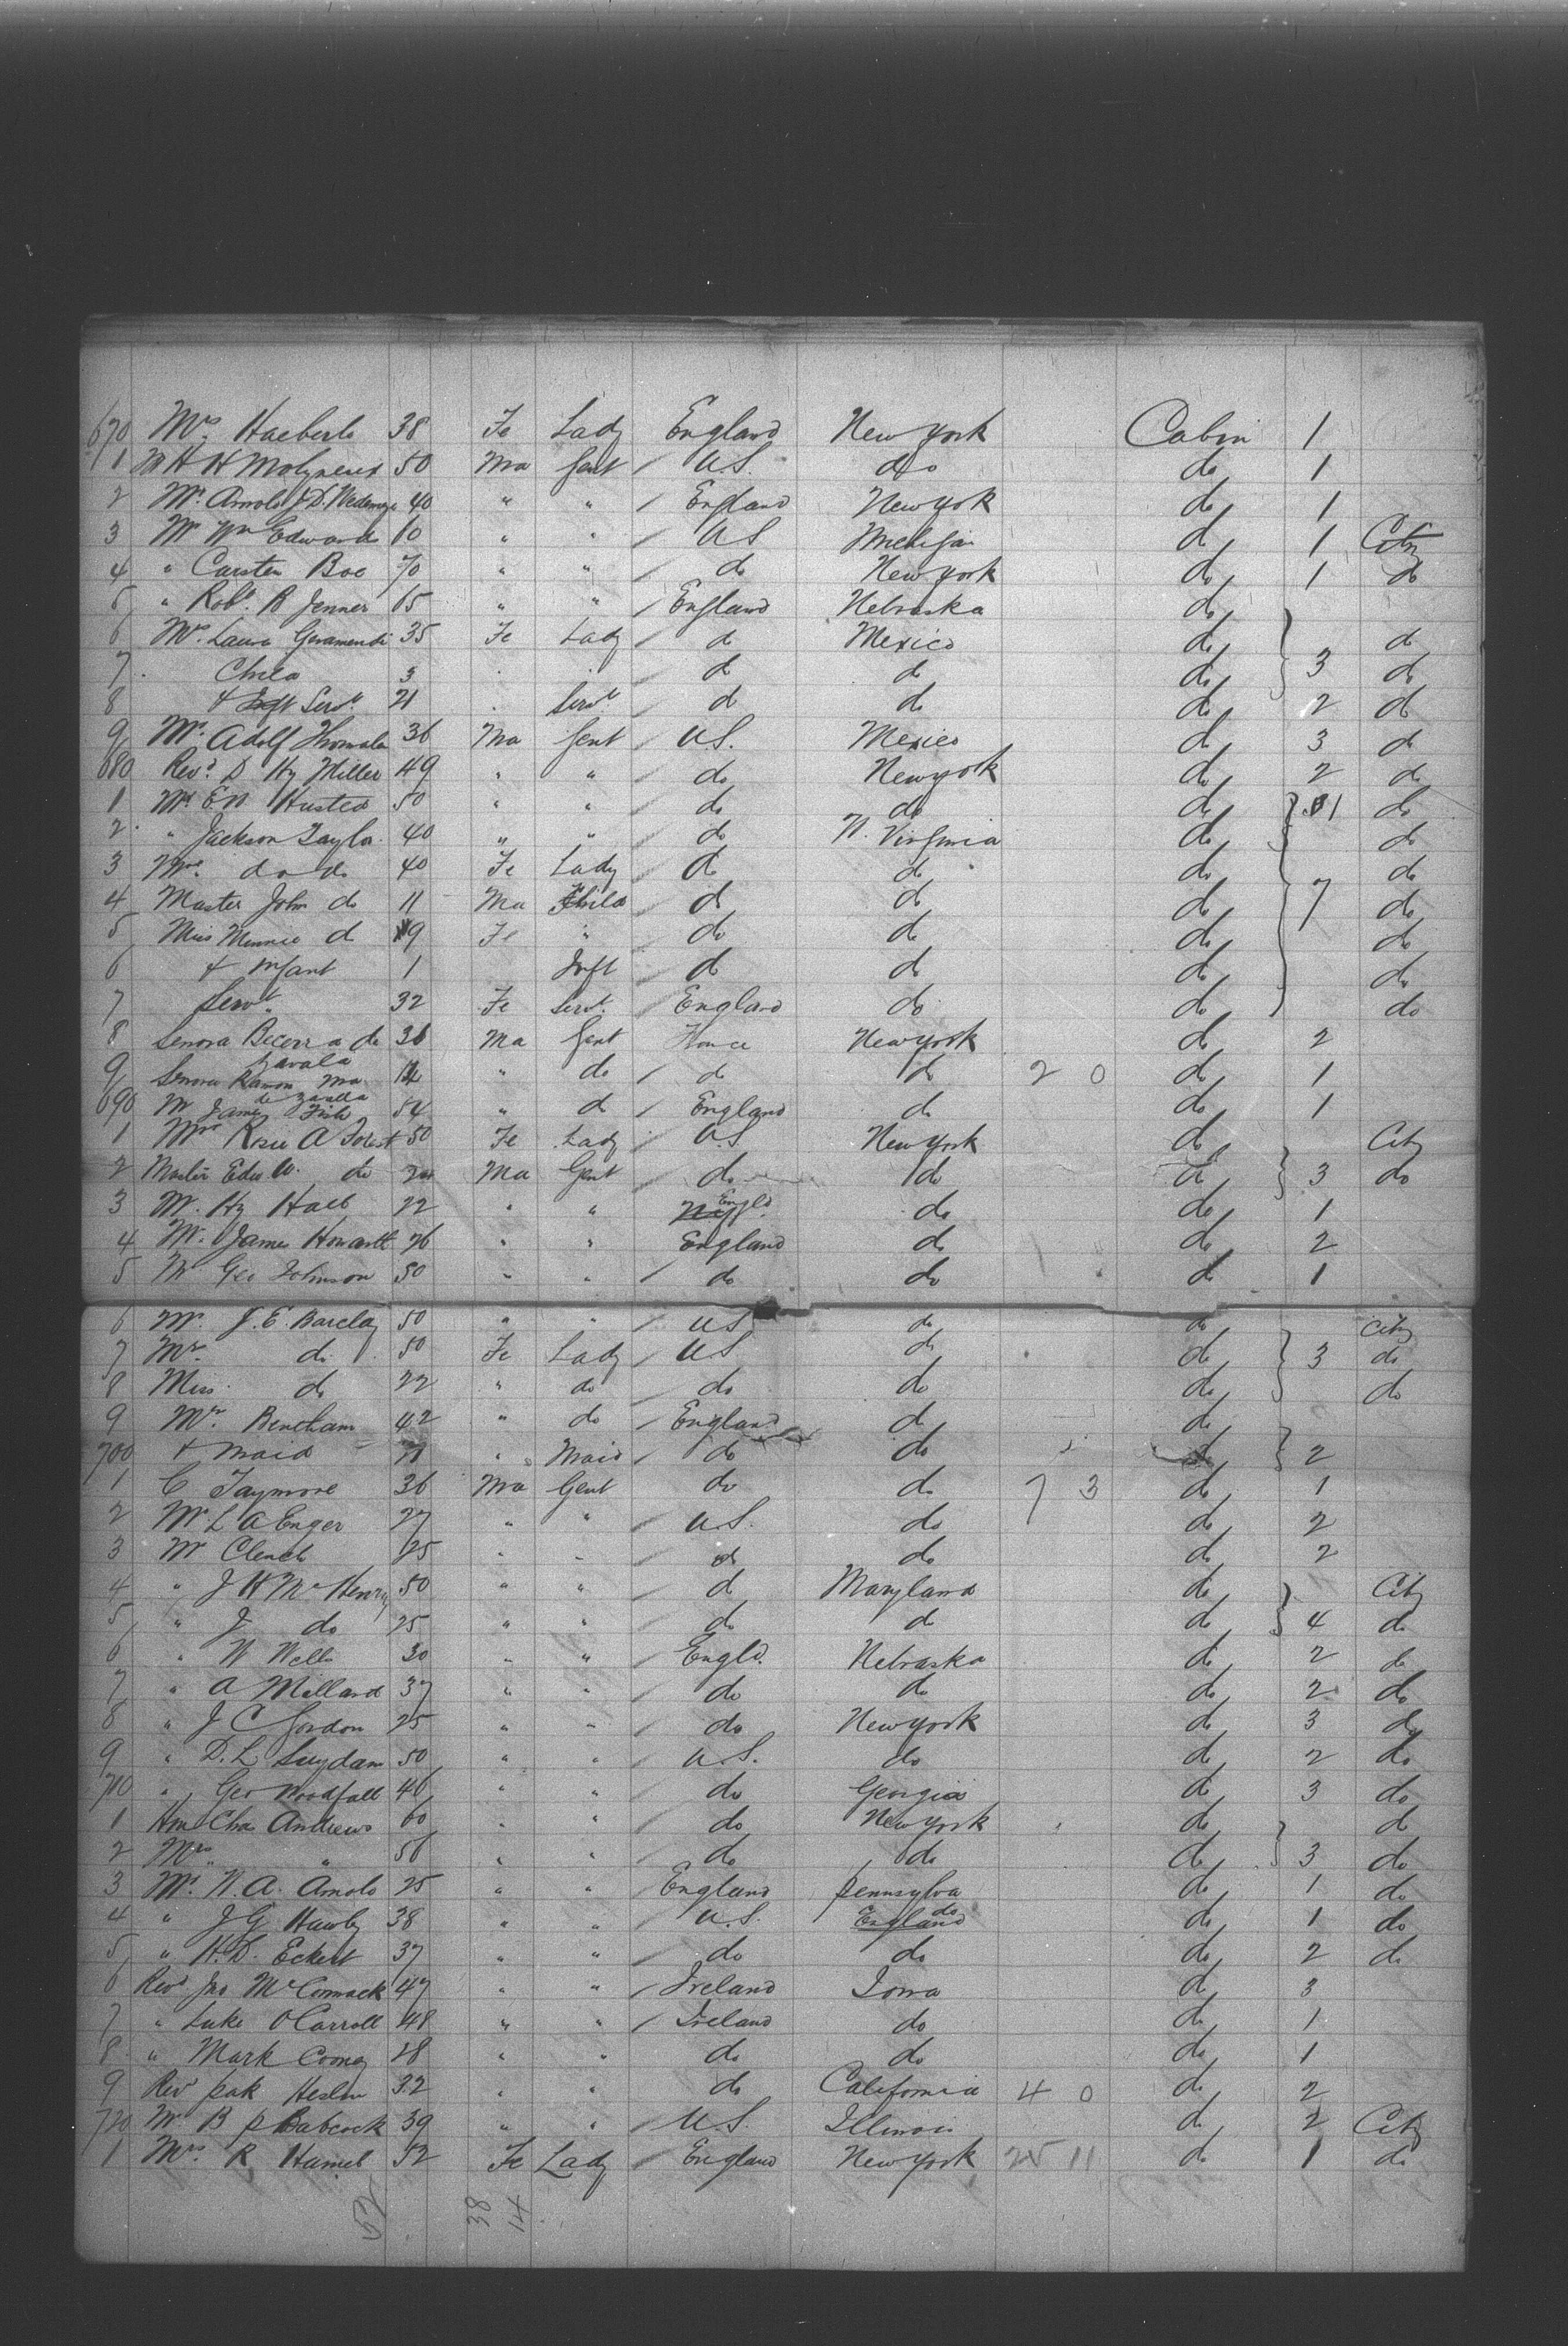 670 Mrs Haeberle 38 Fe Lady England New York Cabin 1
1 Mr H H Molyneux 50 Ma Gent / U.S. do do 1
2 Mr. Arnold J. D. 40 " " / England New York do 1
3 Mr Wm Edwards 60 " " / US Michigan do 1 City
4 " Carsten Boe 70 " " / do New York do 1 do
5 " Robt. B Jenner 65 " " / England Nebraska do
6 Mrs. Laura Garamendi 35 Fe Lady / do Mexico do do
7 Child 3 do do do } 3 do
8 & Servt. 21 Servt. do do do 2 do
9 Mr. Adolf 36 Ma Gent / U.S. Mexico do 3 do
680 Revd. D Hy Miller 49 " " / do New York do 2 do
1 Mr E. Husted 50 " " / do do do } 1 do
2 " Jackson Taylor 40 " " / do W. Virginia do do
3 Mrs. do do 40 Fe Lady / do do do do
4 Master John do 11 Ma Child / do do do } 7 do
5 Miss Minnie do 9 Fe " / do do do do
6 & Infant 1 Inft / do do do do
7 Servt. 32 Fe Servt. / England do do do
8 Senora Becerra de 36 Ma Gent New York do 2
Zavala
9 Senora Ramon Ma 14 " do / do do 2 0 do 1
de Zavala
690 Mr James Fish 54 " do / England do do 1
1 Mrs Rosie A 50 Fe Lady U.S New York do City
2 Master Edw W. do Ma Gent / do do do } 3 do
3 Mr. Hy Hall 22 " " Engld. do do 1
4 Mr. James Howarth 26 " " England do do 2
5 Mr Geo Johnson 50 " " / do do do 1
6 Mr. J. E. Barclay 50 " " / US do do City
7 Mrs. do 50 Fe Lady / US do do } 3 do
8 Miss do 22 " do / do do do do
9 Mrs. Bentham 42 " do / England do do
700 & maid 21 " Maid / do do do } 2
1 C Taymore 36 Ma Gent do do 7 3 do 1
2 Mr L A Enger 27 " " / U.S. do do 2
3 Mr Clench 25 " " / do do do 2
4 " J H McHenry 50 " " / do Maryland do City
5 " J do 25 " " / do do do } 4 do
6 " W Wells 30 " " / Engld. Nebraska do 2 do
7 " A Millard 37 " " / do do do 2 do
8 " J C Gordon 25 " " / do New York do 3 do
9 " D. L Suydam 50 " " / U.S. do do 2 do
710 " Geo Woodfall 46 " " / do Georgia do 3 do
1 Hon Chas Andrews 60 " " / do New York do do
2 Mrs " 56 " " / do do do } 3 do
3 Mr. W. A. Arnold 25 " " / England Pennsylva do 1 do
4 " J G Hawley 38 " " / U.S. England do do 1 do
5 " H. D. Eckert 37 " " / do do do 2 do
6 Revd Jno McCormack 47 " " / Ireland Iowa do 3
7 " Luke O'Carroll 48 " " / Ireland do do 1
8 " Mark Cooney 28 " " / do do do 1
9 Revd Pak Heslin 32 " " / do California 4 0 do 2
720 Mr B P Babcock 39 " " / U.S. Illinois do 2 City
1 Mrs R Hamel 52 Fe Lady / England New York 25 11 do 1 do
52 38 14